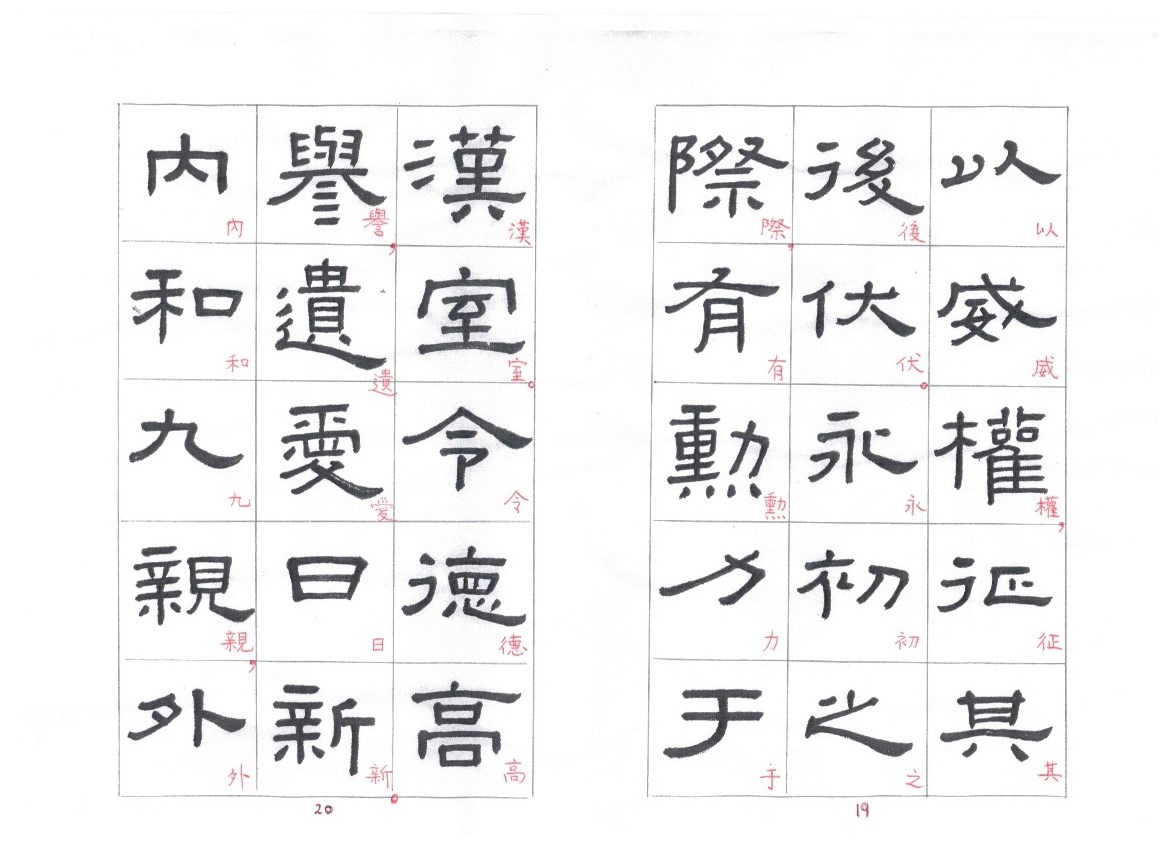 以威權征其
以威權,征其
後伏永初之
後伏。永初之
際有勳力于
際,有勳力于
19
漢室令德高
漢室。令德高
譽遺愛日新
譽,遺愛日新。
內和九親外
內和九親,外
20